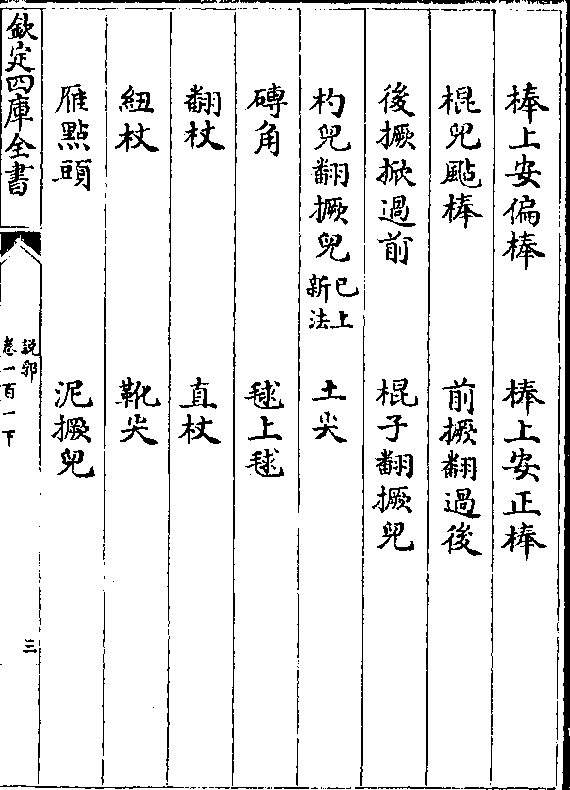 棒上安偏棒　棒上安正棒
棍兒颭棒　前撅翻過後
後撅掀過前　棍子翻撅兒
杓兒翻撅兒已上新法　土尖
磚角　毬上毬
翻杖　直杖
紐杖　靴尖
雁點頭　泥撅兒
欽定四庫全書
說郛
卷一百一下
三